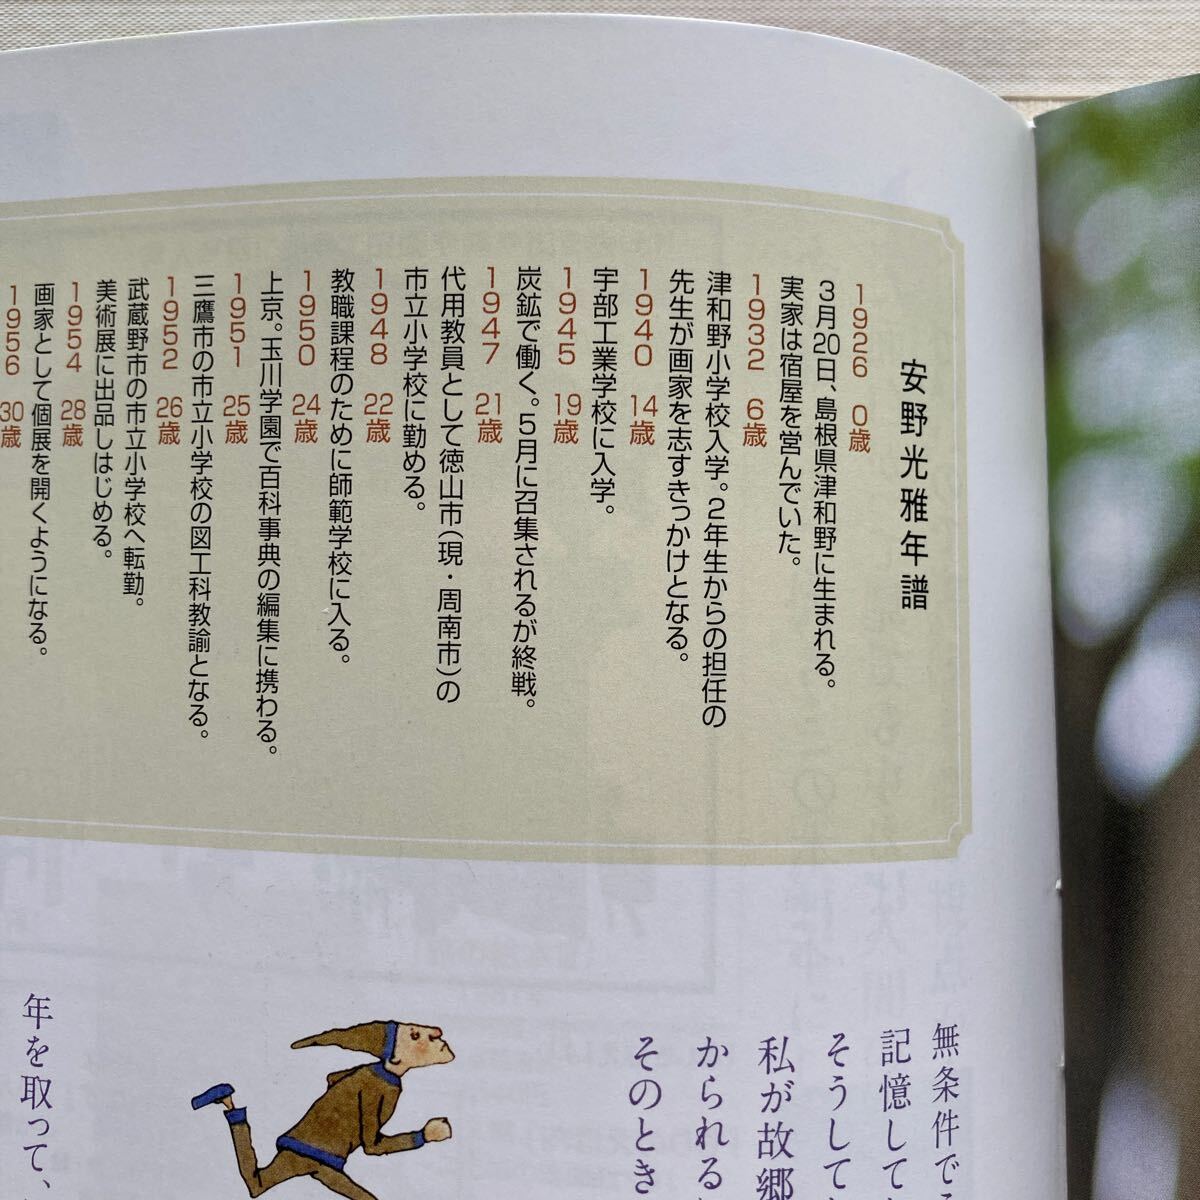 安野光雅年譜
1926 0歳
3月20日、島根県津和野に生まれる。
実家は宿屋を営んでいた。
1932 6歳
津和野小学校入学。2年生からの担任の
先生が画家を志すきっかけとなる。
1940 14歳
宇部工業学校に入学。
1945 19歳
炭鉱で働く。5月に召集されるが終戦。
1947 21歳
代用教員として徳山市(現・周南市)の
市立小学校に勤める。
1948 22歳
教職課程のために師範学校に入る。
1950 24歳
上京。玉川学園で百科事典の編集に携わる。
1951 25歳
三鷹市の市立小学校の図工科教諭となる。
1952 26歳
武蔵野市の市立小学校へ転勤。
美術展に出品しはじめる。
1954 28歳
画家として個展を開くようになる。
1956 30歳
無条件で
記憶して
そうして
私が故郷
かられる
そのとき
年を取って、